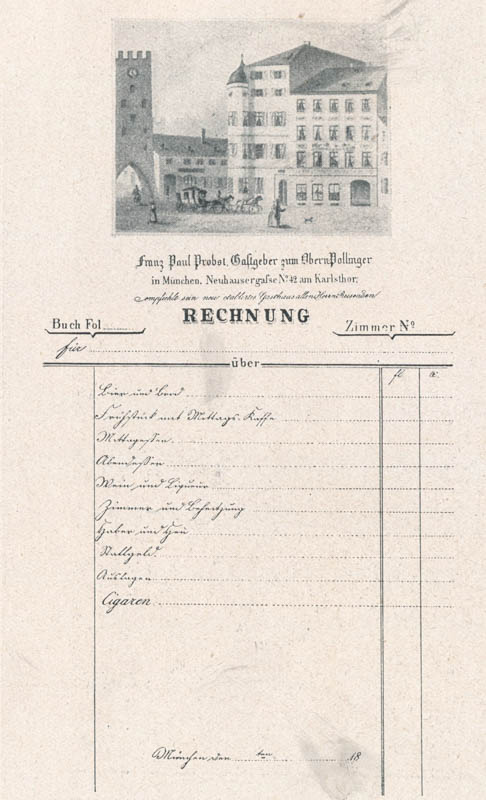 Franz Paul Probst, Gastgeber zum Obern Pollinger
in München, Neuhausergasse Nº 42 am Karlsthor,
empfiehlt sein neu etablirtes Gasthaus allen Herrn Reisenden
RECHNUNG
Buch Fol. Zimmer Nº
für
über
fl x.
Bier und Brod
Frühstück mit Mittags-Kaffe
Mittagessen
Abendessen
Wein und Liqueur
Zimmer und Beheitzung
Haber und Heu
Stallgeld
Auslagen
Cigaren
München den ten 18